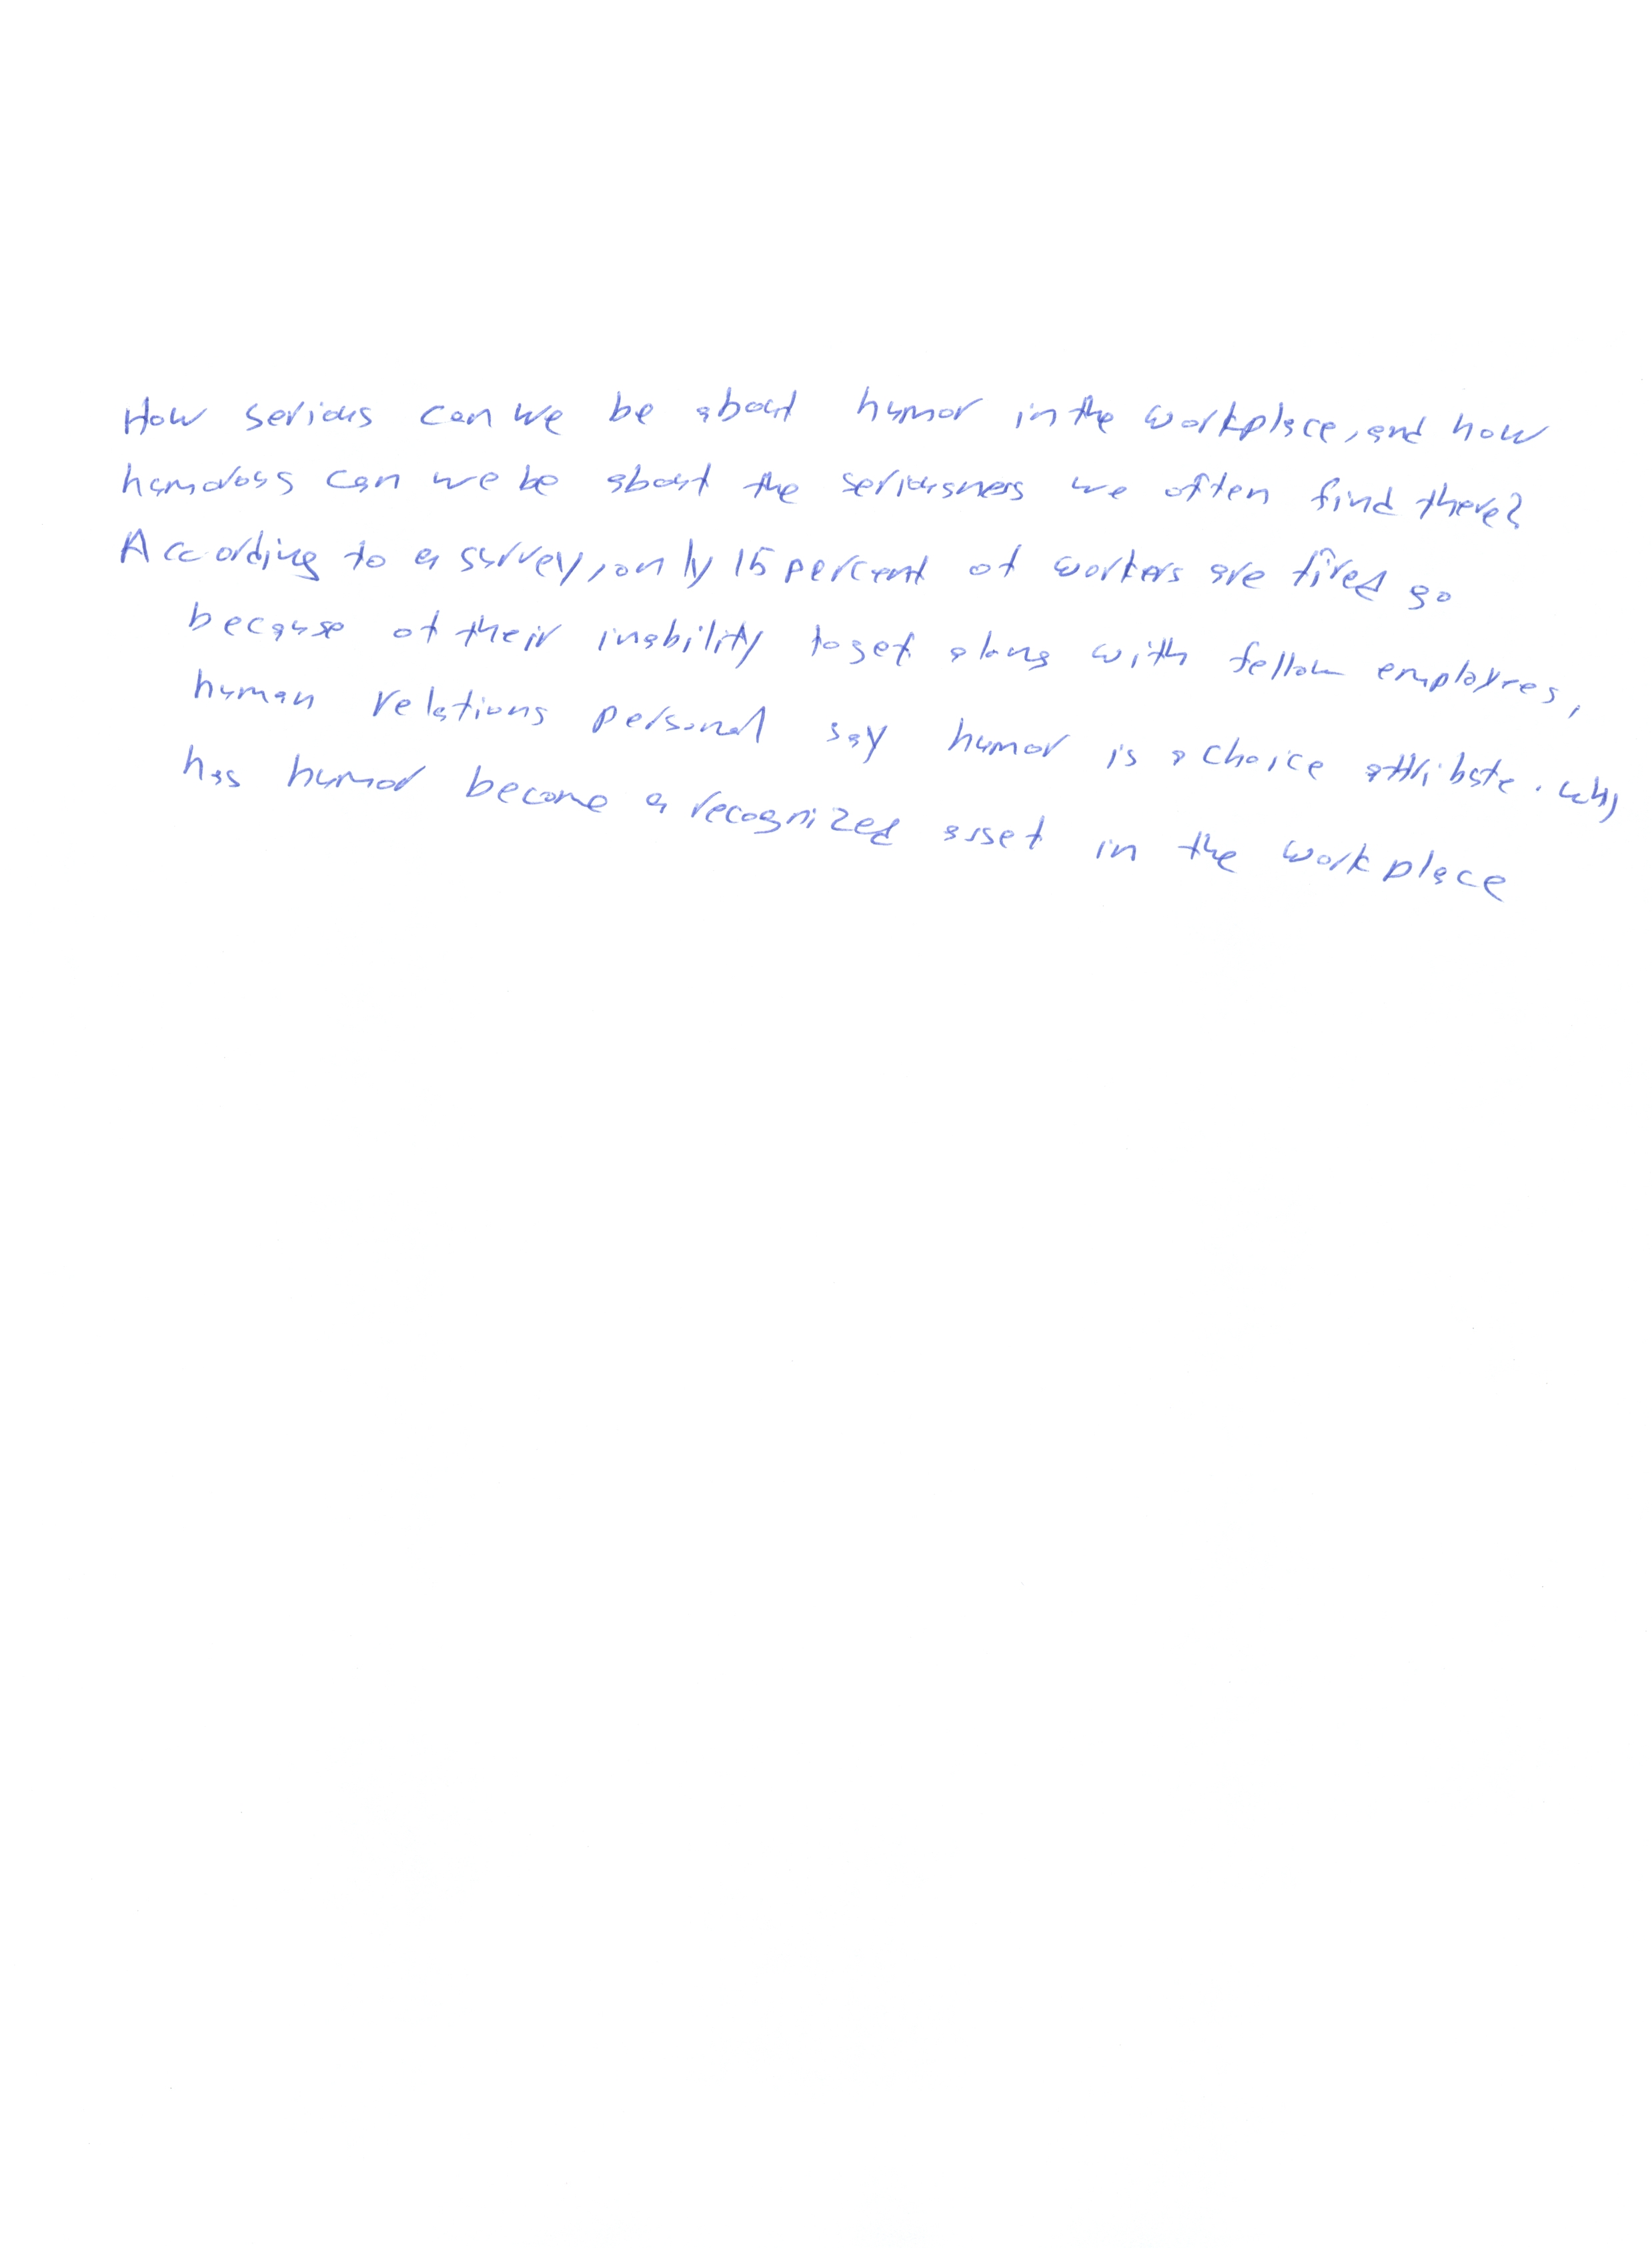 How serious can we be about humor in the workplace, and how
humorous can we be about the seriousness we often find there?
According to a survey, only 15 percent of workers are fired go
because of their inability to get along with fellow employees,
human relations personal say humor is a choice attribute. Why
has humor become a recognized asset in the workplace